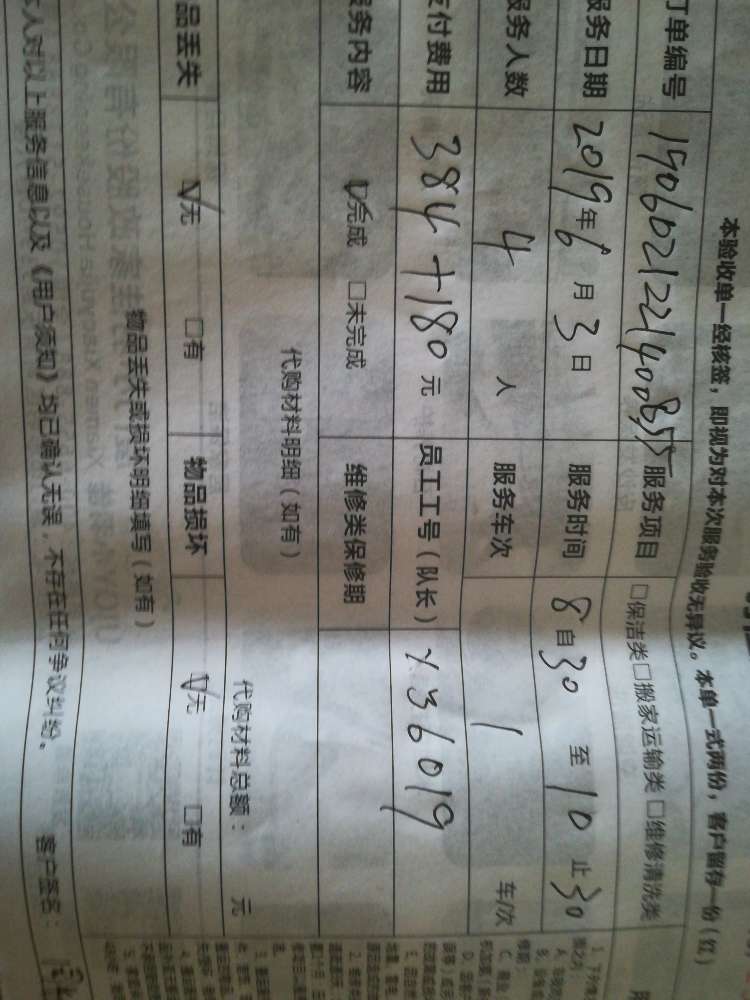 本验收单一经核签，即视为对本次服务验收无异议。本单一式两份，客户留存一份（红）
订单编号 190602122140085 服务项目 □保洁类□搬家运输类 □维修清洗类
服务日期 2019年6月3日 服务时间 8自30 至10止30
服务人数 4 人 服务车次 1 车/次
支付费用 384+180 元 员工工号（队长） X36019
服务内容 ☑完成 □未完成 维修类保修期
代购材料明细（如有） 代购材料总额： 元
品丢失 ☑无 □有 物品损坏 ☑无 □有
物品丢失或损坏明细填写（如有）
本人对以上服务信息以及《用户须知》均已确认无误，不存在任何争议纠纷。 客户签名：